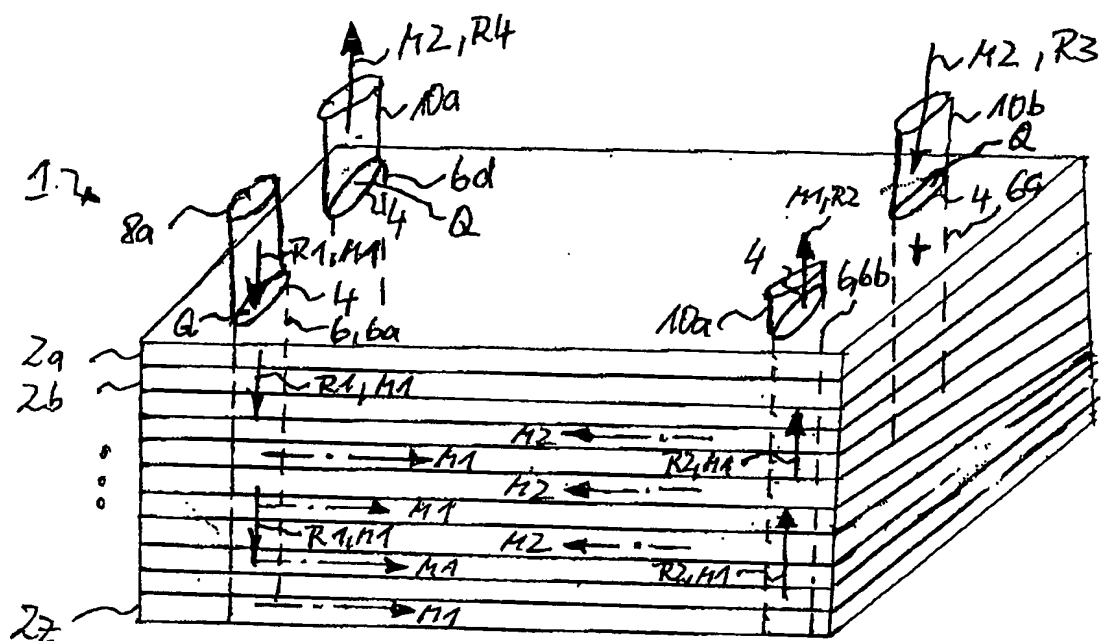 M2, R4
M2, R3
10a
10b
Q
1
6d
4
Q
4, 6c
8a
M1, R2
R1, M1
4
6, 6b
4
Q
6, 6a
10a
2a
2b
R1, M1
M2
M1
R2, M1
M2
M1
R1, M1
M2
M1
R2, M1
2z
M1